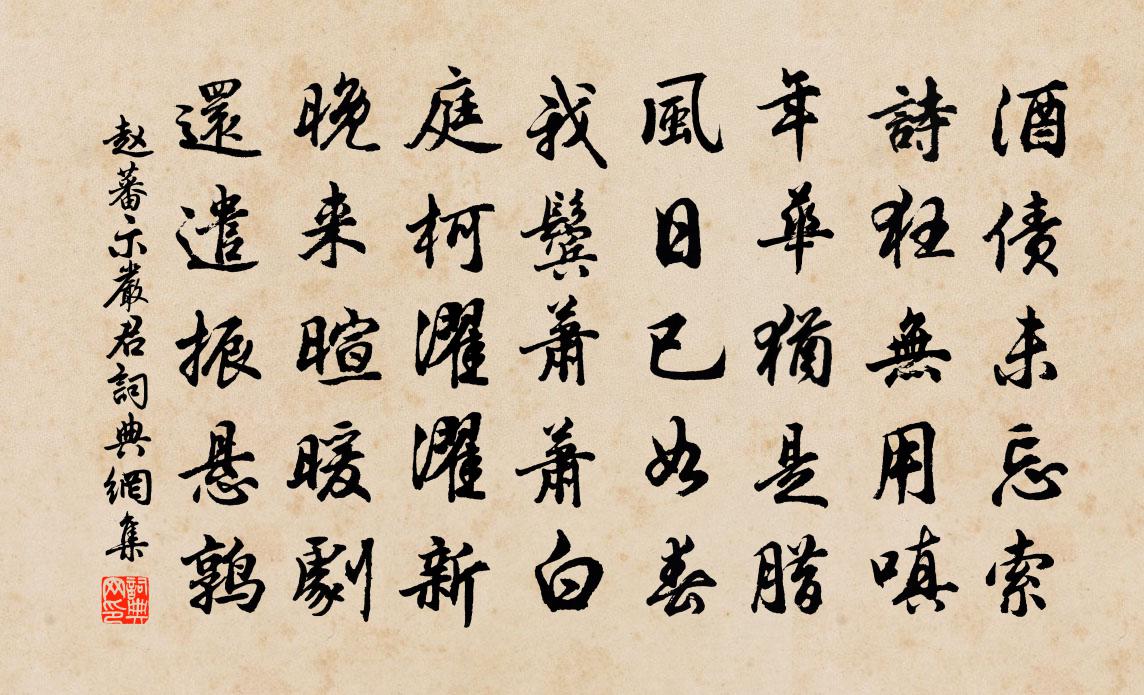 酒債未忘索
詩狂無用嗔
年華猶是腊
風日已如春
我鬢蕭蕭白
庭柯濯濯新
晚来暄暖劇
還遣振悬鹑
赵蕃示嚴君詞典網集
詞典网印